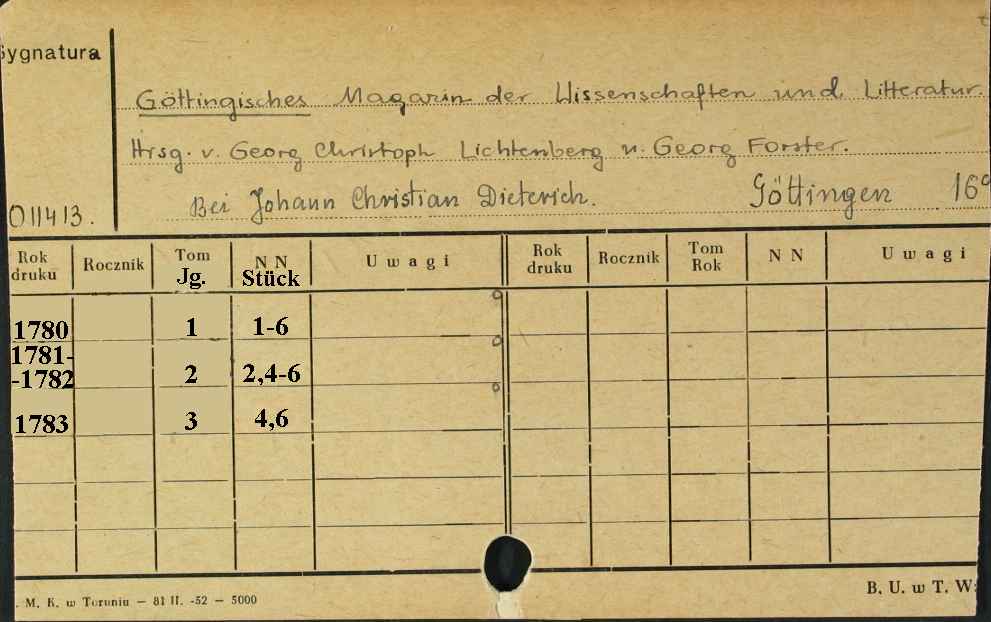 Sygnatura
Göttingisches Magazin der Wissenschaften und Litteratur.
Hrsg. v. Georg Christoph Lichtenberg u. Georg Forster.
011413. Bei Johann Christian Dieterich. Göttingen 16°
Rok druku Rocznik Tom Jg. N N Stück Uwagi Rok druku Rocznik Tom Rok N N Uwagi
1780 1 1-6
1781-
-1782 2 2,4-6
1783 3 4,6
. M. K. w Toruniu — 81 II. -52 — 5000
B. U. w T. W: